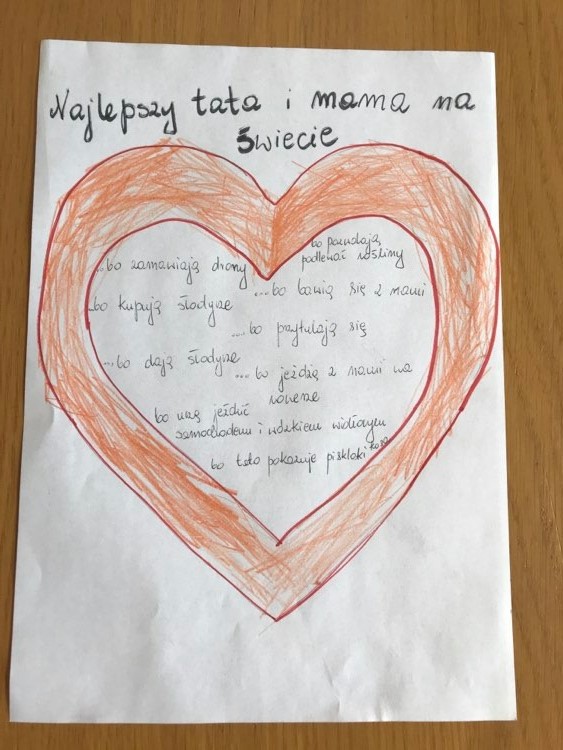 Najlepszy tata i mama na
świecie
bo pozwalają
podlewać rośliny
...bo zamawiają drony
...bo bawią się z nami
bo kupują słodycze
....bo przytulają się
...bo dają słodycze
...bo jeżdżą z nami na
rowerze
bo uczą jeździć
samochodem i wózkiem widłowym
bo tato pokazuje piskloki